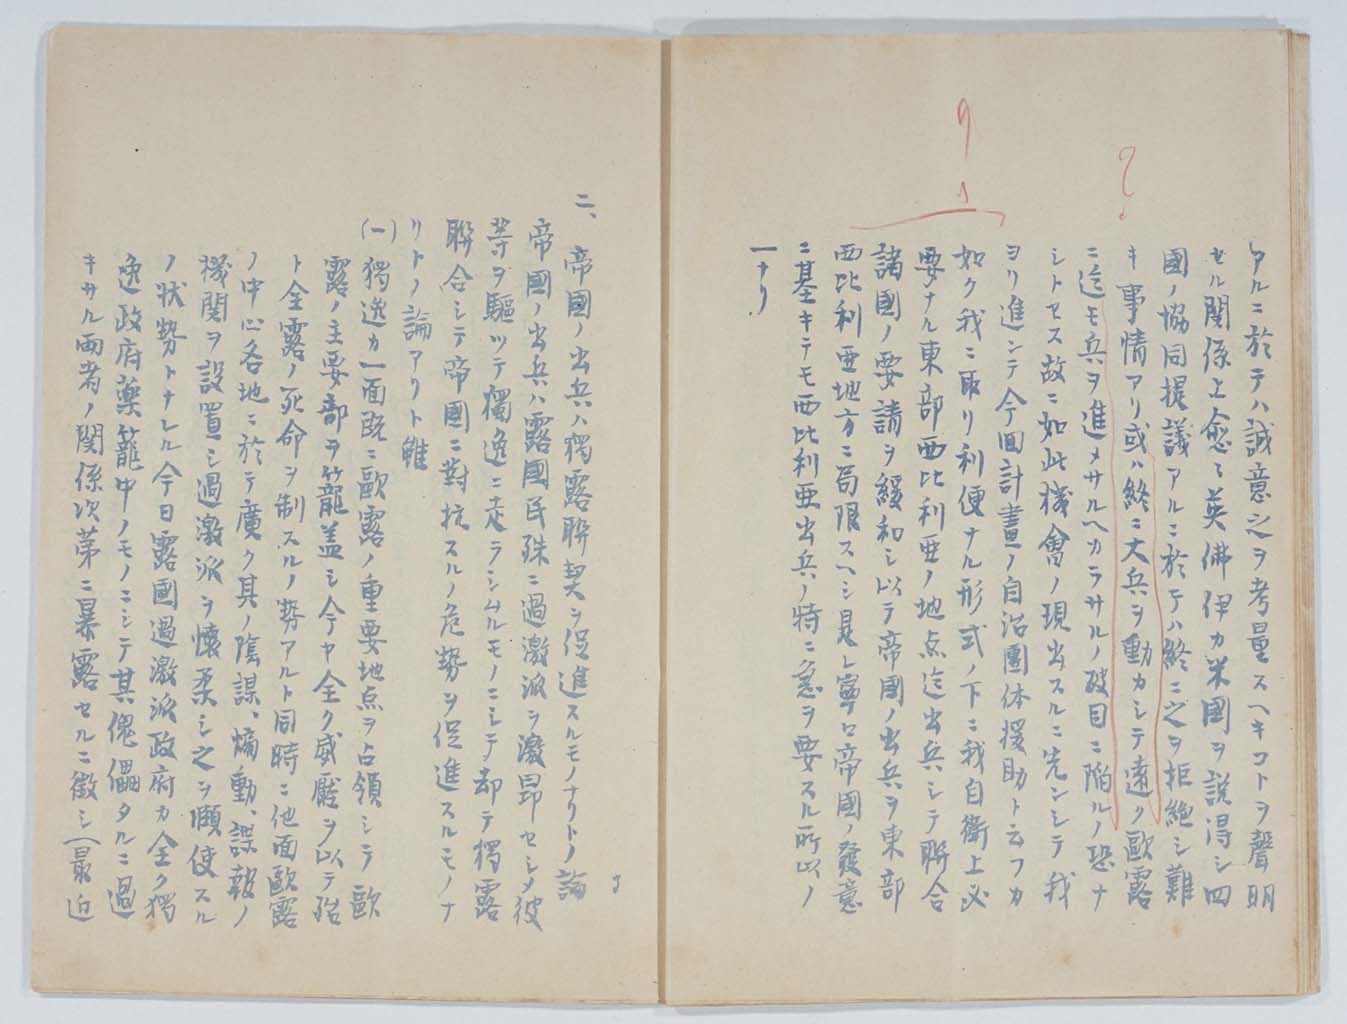 タルニ於テハ誠意之ヲ考量スヘキコトヲ聲明
セル関係上愈々英佛伊カ米國ヲ説得シ四
國ノ協同提議アルニ於テハ終ニ之ヲ拒絶シ難
キ事情アリ或ハ終ニ大兵ヲ動カシテ遠ク歐露
ニ迄モ兵ヲ進メサルヘカラサルノ破目ニ陥ルノ恐ナ
シトセス故ニ如此機會ノ現出スルニ先ンシテ我
ヨリ進ンテ今回計畫ノ自治團体援助ト云フカ
如ク我ニ取リ利便ナル形式ノ下ニ我自衛上必
要ナル東部西比利亜ノ地点迄出兵シテ聯合
諸國ノ要請ヲ緩和シ以テ帝國ノ出兵ヲ東部
西比利亜地方ニ局限スヘシ是レ寧ロ帝國ノ發意
ニ基キテモ西比利亜出兵ノ特ニ急ヲ要スル所以ノ
一ナリ
二、帝國ノ出兵ハ獨露聯契ヲ促進スルモノナリトノ論
帝國ノ出兵ハ露國民殊ニ過激派ヲ激昂セシメ彼
等ヲ驅ツテ獨逸ニ走ラシムルモノニシテ却テ獨露
聯合シテ帝國ニ對抗スルノ危勢ヲ促進スルモノナ
リトノ論アリト雖
(一)獨逸カ一面既ニ歐露ノ重要地点ヲ占領シテ歐
露ノ主要部ヲ籠盖シ今ヤ全ク威壓ヲ以テ殆
ト全露ノ死命ヲ制スルノ勢アルト同時ニ他面歐露
ノ中心各地ニ於テ廣ク其ノ陰謀、煽動、諜報ノ
機関ヲ設置シ過激派ヲ懐柔シ之ヲ頤使スル
ノ状勢トナレル今日露國過激派政府カ全ク獨
逸政府薬籠中ノモノニシテ其傀儡タルニ過
キサル両者ノ関係次第ニ暴露セルニ徴シ最近